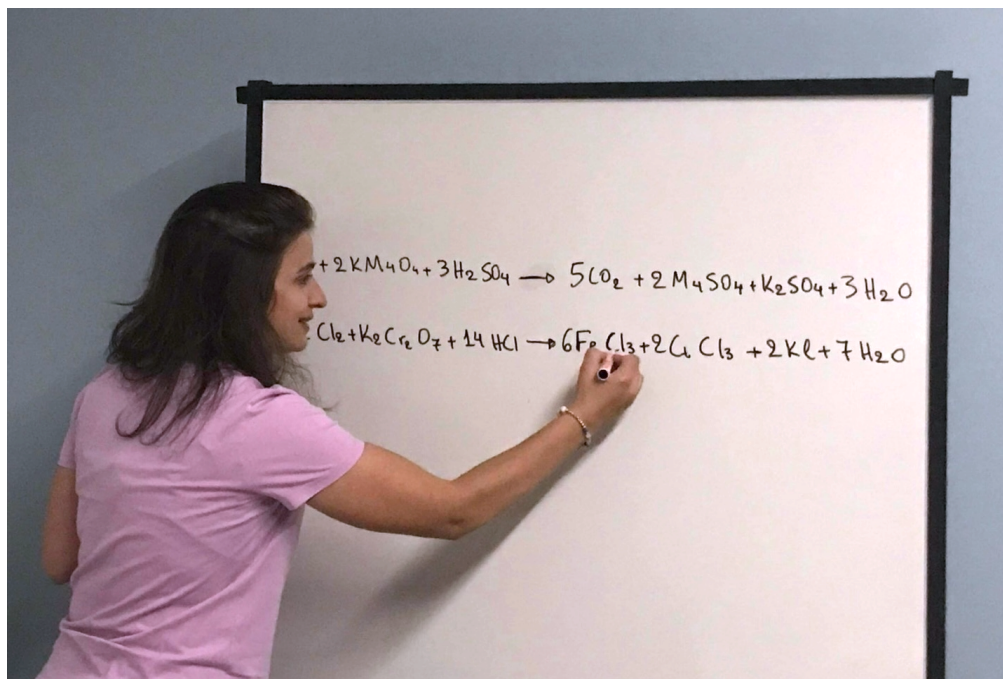 + 2KMnO₄ + 3H₂SO₄ → 5CO₂ + 2MnSO₄ + K₂SO₄ + 3H₂O
Cl₂ + K₂Cr₂O₇ + 14HCl → 6FeCl₃ + 2CrCl₃ + 2Kl + 7H₂O